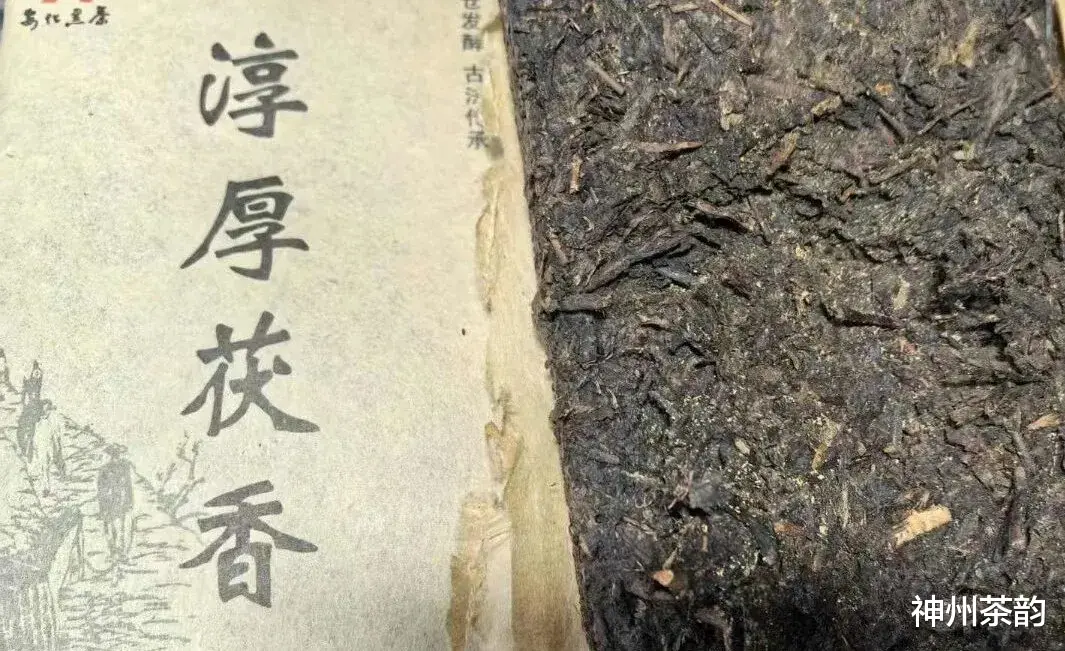 安化黑茶
淳厚茯香
仓发酵 古法传承
神州茶韵